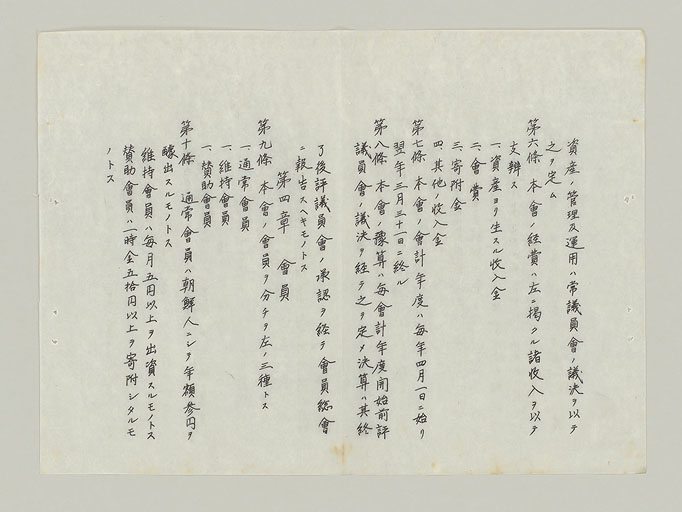 資産ノ管理及運用ハ常議員會ノ議決ヲ以テ
之ヲ定ム
第六條 本會ノ経費ハ左ニ掲クル諸收入ヲ以テ
支辨ス
一、資産ヨリ生スル收入金
二、會費
三、寄附金
四、其他ノ收入金
第七條 本會ノ會計年度ハ毎年四月一日ニ始リ
翌年三月三十一日ニ終ル
第八條 本會ノ豫算ハ毎會計年度開始前評
議員會ノ議決ヲ経テ之ヲ定メ決算ハ其終
了後評議員會ノ承認ヲ経テ會員総會
ニ報告スヘキモノトス
第四章 會員
第九條 本會ノ會員ヲ分チテ左ノ三種トス
一、通常會員
一、維持會員
一、賛助會員
第十條 通常會員ハ朝鮮人ニシテ年額参円ヲ
醵出スルモノトス
維持會員ハ毎月五円以上ヲ出資スルモノトス
賛助會員ハ一時金五拾円以上ヲ寄附シタルモ
ノトス